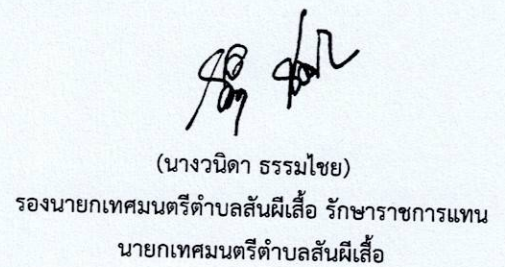 (นางวนิดา ธรรมไชย)
รองนายกเทศมนตรีตำบลสันผีเสื้อ รักษาราชการแทน
นายกเทศมนตรีตำบลสันผีเสื้อ